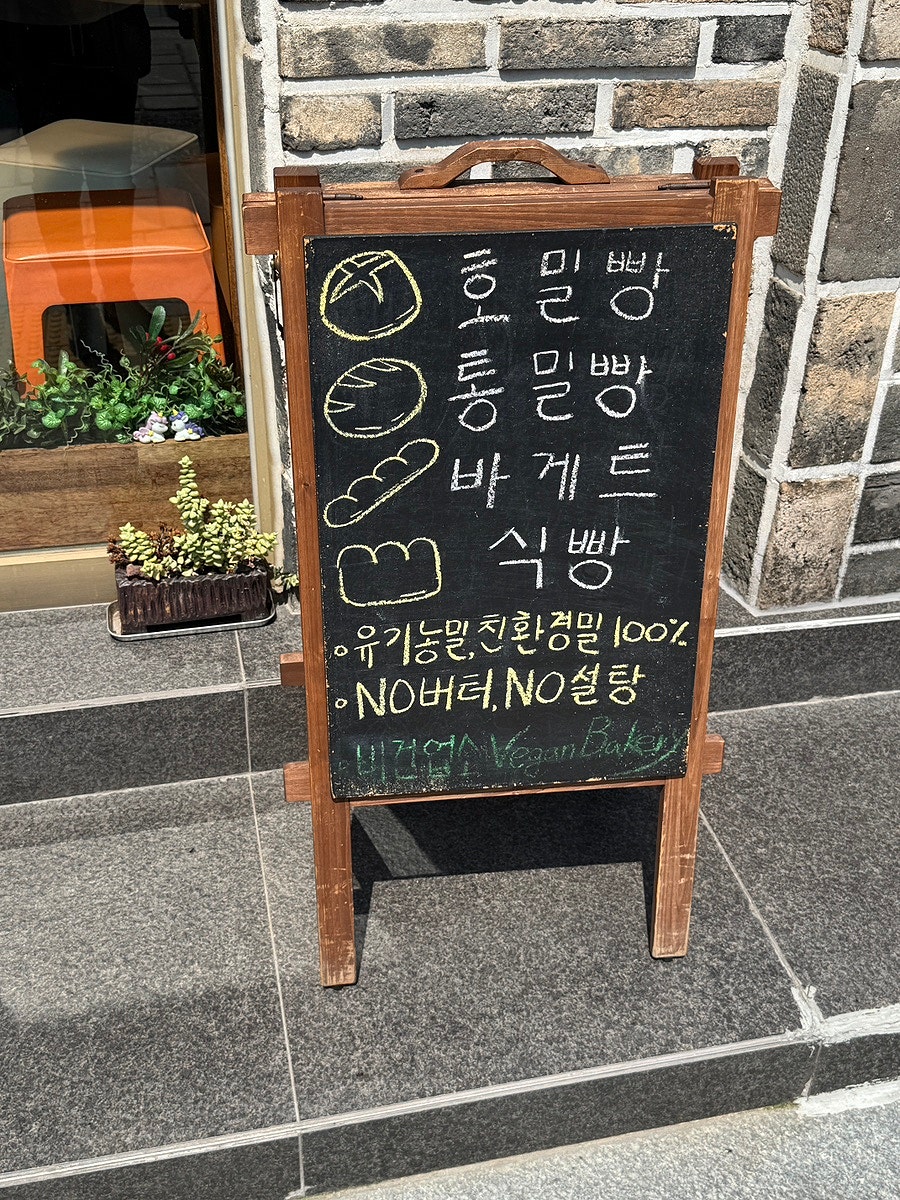 호밀빵
통밀빵
바게트
식빵
◦유기농밀,친환경밀 100%
◦NO버터, NO설탕
◦비건업소 Vegan Bakery